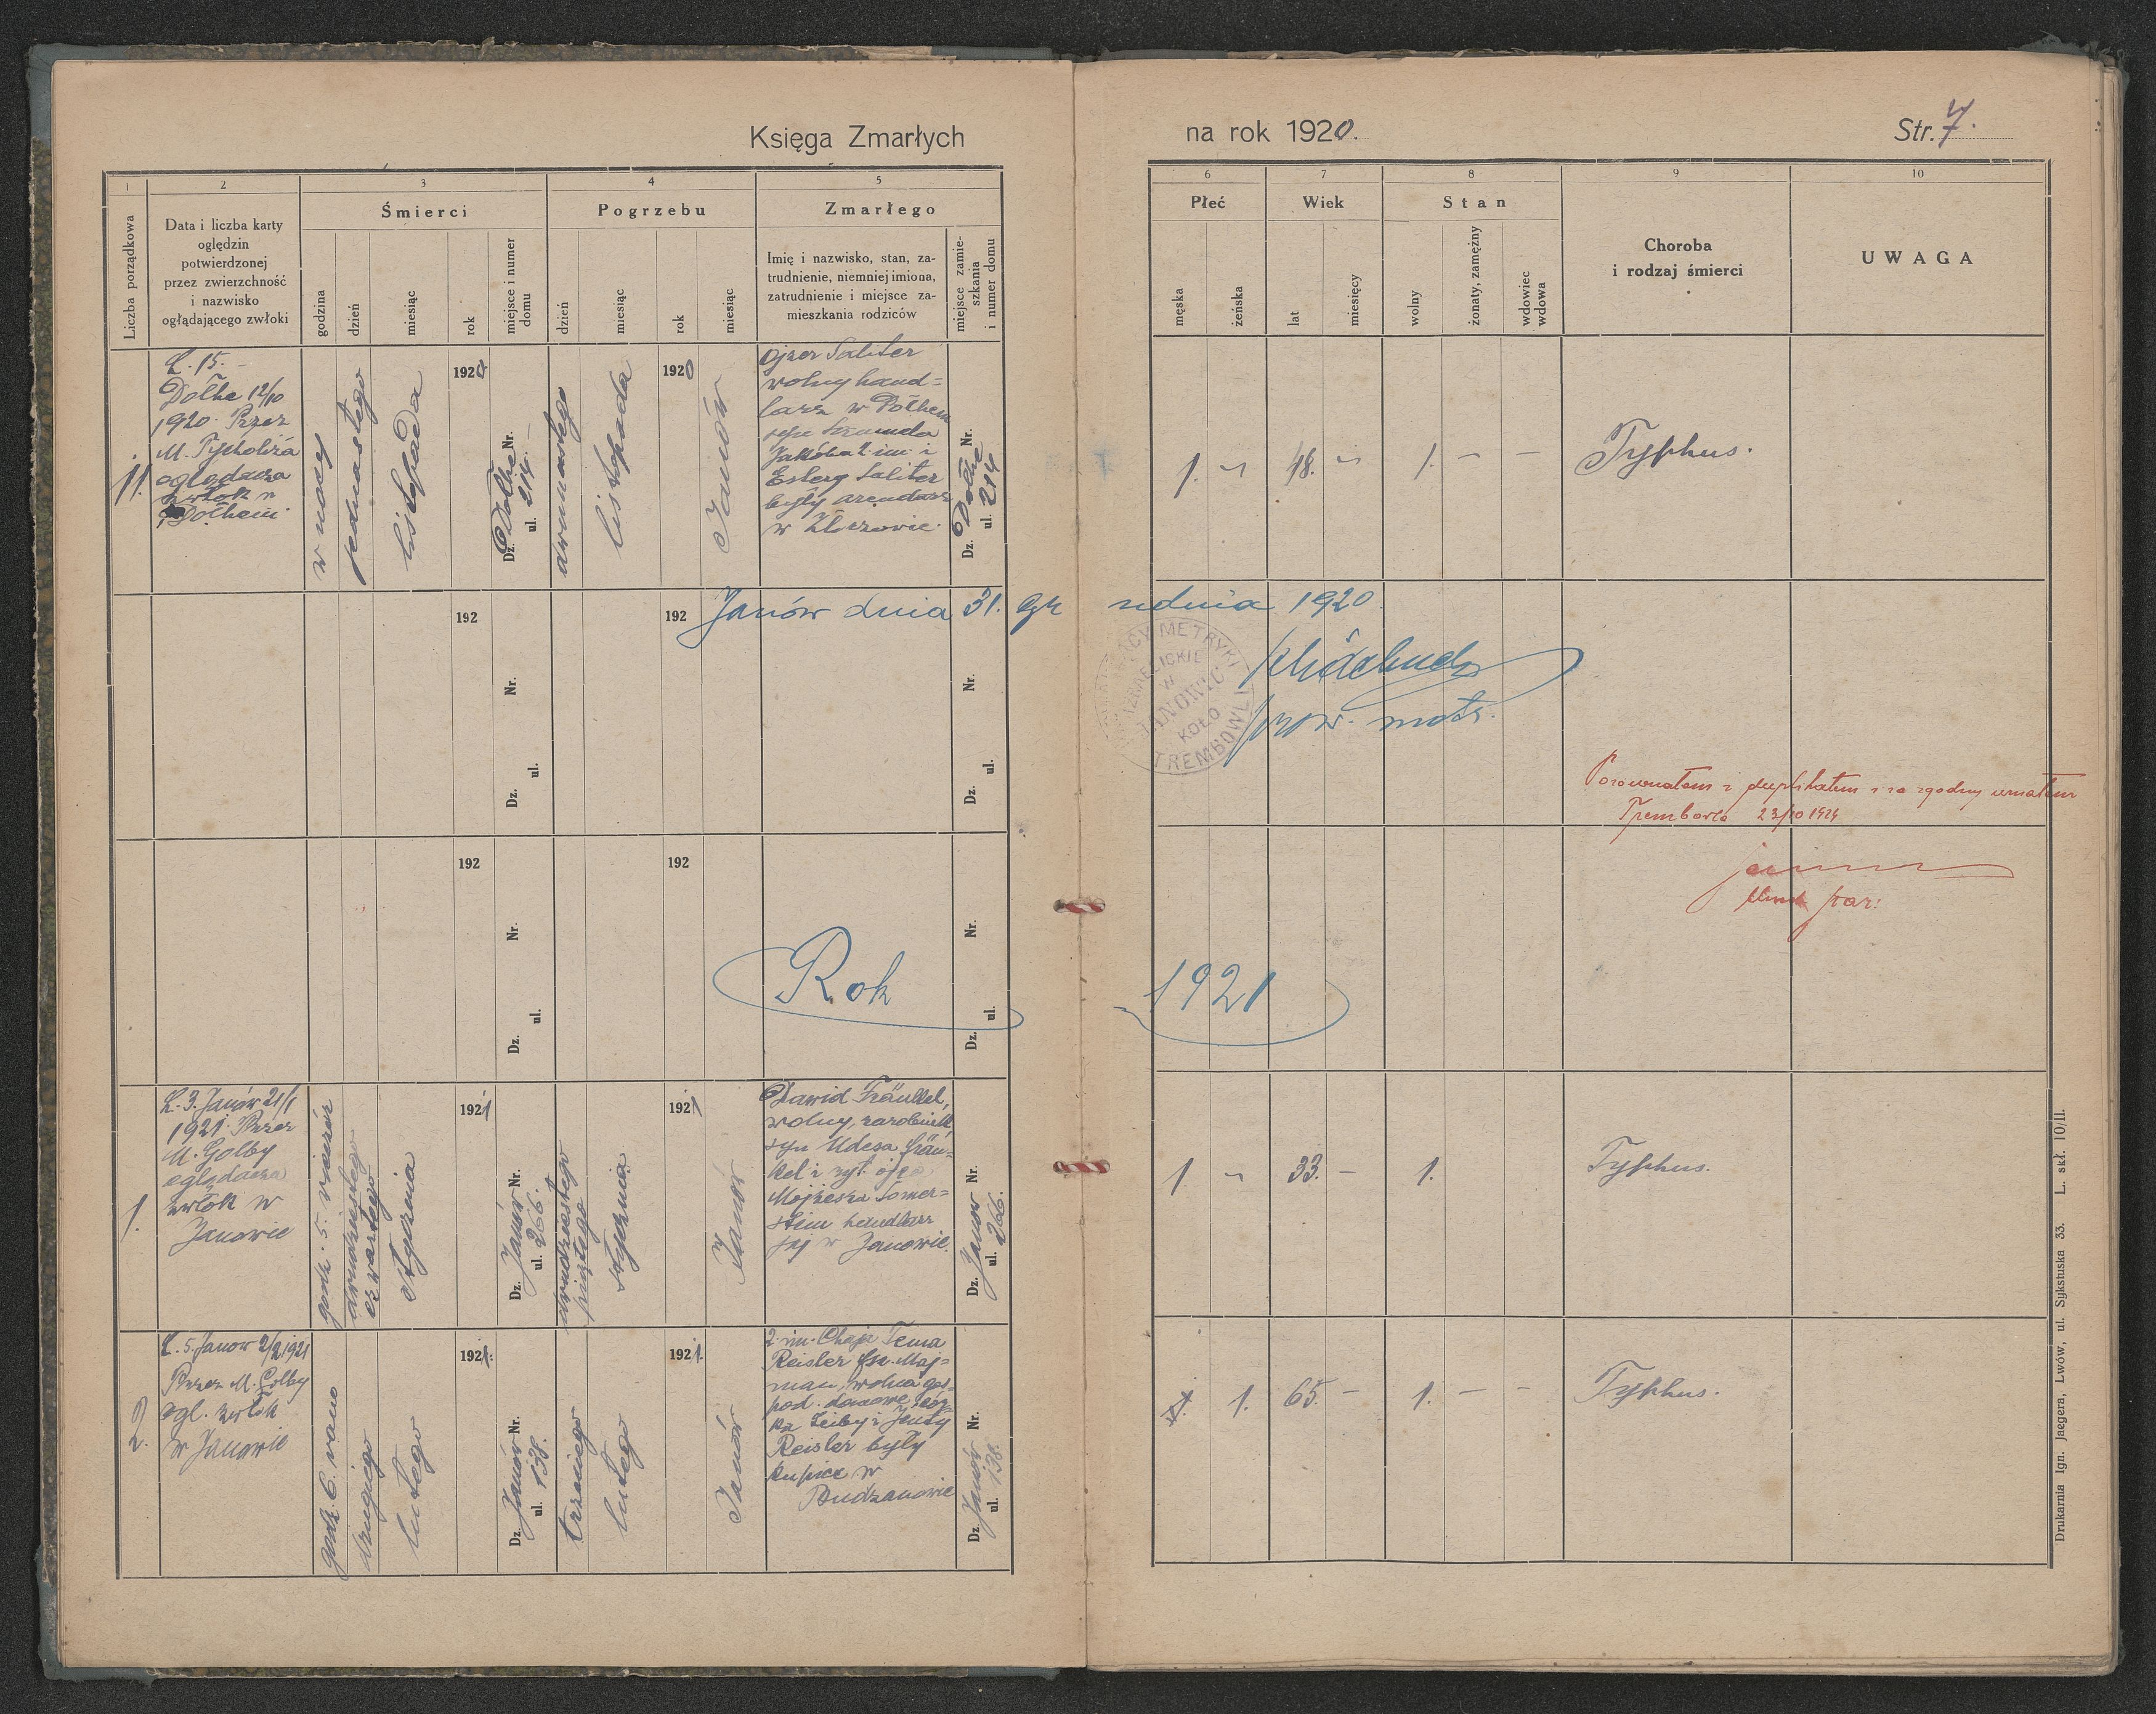 Księga Zmarłych
na rok 1920.
Str. 7.
1
2
3
4
5
Liczba porządkowa
Data i liczba karty
oględzin
potwierdzonej
przez zwierzchność
i nazwisko
ogłądającego zwłoki
Śmierci
godzina
dzień
miesiąc
rok
miejsce i numer
domu
Pogrzebu
dzień
miesiąc
rok
miesiąc
Zmarłego
Imię i nazwisko, stan, za-
trudnienie, niemniej imiona,
zatrudnienie i miejsce za-
mieszkania rodziców
miejsce zamie-
szkania
i numer domu
6
7
8
9
10
Płeć
męska
żeńska
Wiek
lat
miesięcy
Stan
wolny
żonaty, zamężny
wdowiec
wdowa
Choroba
i rodzaj śmierci
UWAGA
11.
L. 15.
Dołhe 12/10
1920. Przez
M.
oglądacza
zwłok w
Dołhem
w nocy
jedenastego
listopada
1920
Dz. Dołhe Nr.
ul. 214.
dwunastego
listopada
1920
Janów
Ojzer Saliter
wolny hand-
larz w Dołhem
syn
Jakóba 2 im. i
Estery Saliter
były arendarz
w
Dz. Dołhe Nr.
ul. 214
1.
48.
1. - -
Typhus.
192
Dz. Nr.
ul.
192
Dz. Nr.
ul.
Janów dnia 31. grudnia 1920
METRYKI
IZRAELICKIE
W
JANOWIE
KOŁO
TREMBOWLI
prow. metr.
Porównałem z duplikatem i za zgodny uznałem
Trembowla 23/10 1924
192
Dz. Nr.
ul.
192
Dz. Nr.
ul.
Rok 1921
1.
L. 3. Janów 21/1
1921. Przez
M. Golby
oglądacza
zwłok w
Janowie
godz. 5. wieczór
dwudziestego
czwartego
stycznia
1921
Dz. Janów Nr.
ul. 266.
dwudziestego
piątego
stycznia
1921
Janów
Dawid Fränkel,
wolny, zarobnik
syn Udesa Frän-
kel i
Mojżesza Somer-
stein handlarz
w Janowie.
Dz. Janów Nr.
ul. 266.
1
33. -
1.
Typhus.
2.
L. 5. Janow 2/2 1921
Przez M. Golby
ogl. zwłok
w Janowie
godz. 6. rano
drugiego
lutego
1921.
Dz. Janów Nr.
ul. 138.
trzeciego
lutego
1921.
Janów
2 im. Chaja Tema
Reisler
wolna gos-
pod. domowe, cór-
ka Leiby i Jenty
Reisler były
kupiec w
Budzanowie
Dz. Janów Nr.
ul. 138.
1.
65. -
1. - -
Typhus.
Drukarnia Ign. Jaegera, Lwów, ul. Sykstuska 33. L. skł. 10/II.